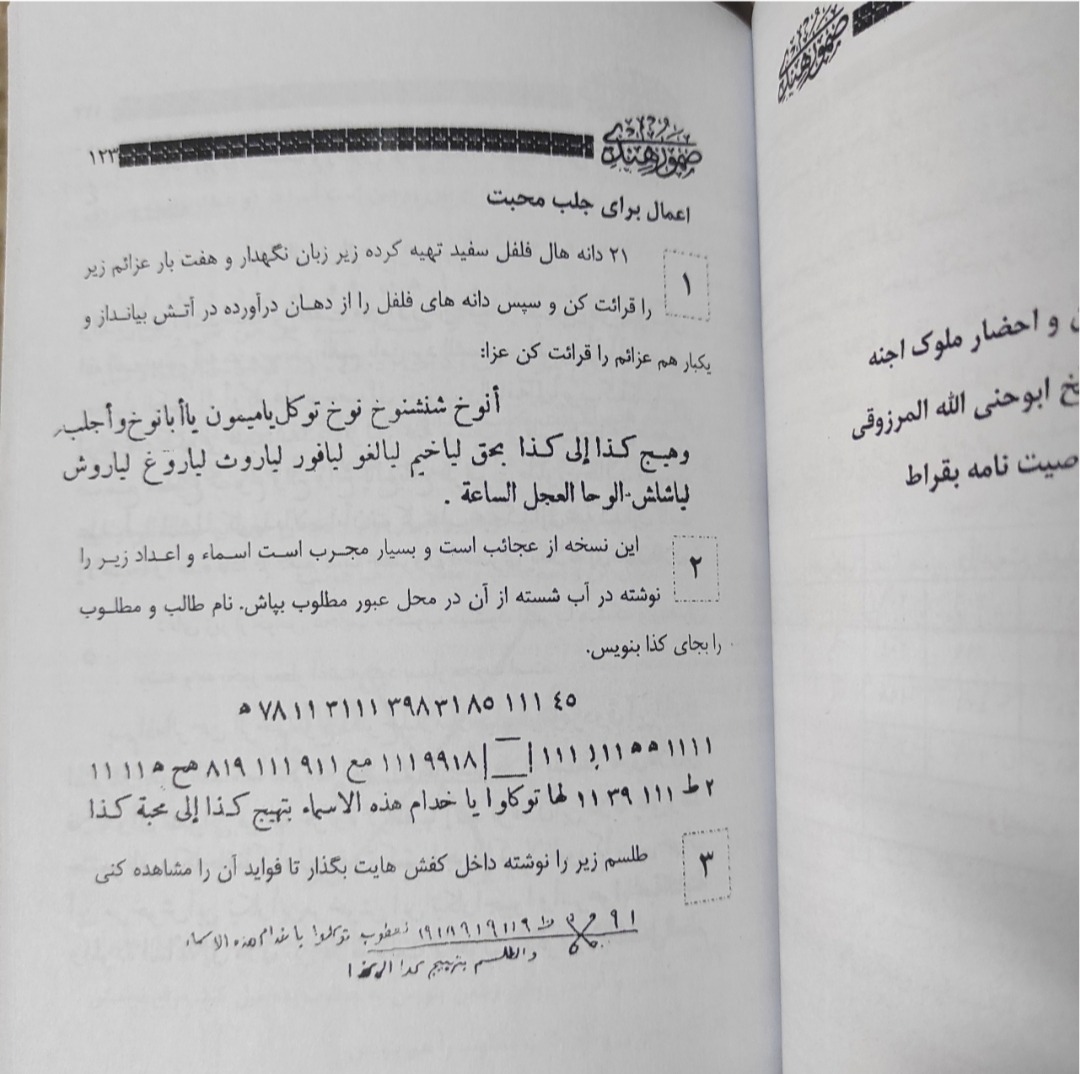 ۱۲۳
صمور هندی
اعمال برای جلب محبت
۱
۲۱ دانه هال فلفل سفید تهیه کرده زیر زبان نگهدار و هفت بار عزائم زیر
را قرائت کن و سپس دانه های فلفل را از دهان درآورده در آتش بیانداز و
یکبار هم عزائم را قرائت کن عزا:
أنوخ شنشنوخ نوخ توكل ياميمون ياأبانوخ وأجلب
وهيج كذا إلى كذا بحق لياخيم ليالغو ليافور لياروث لياروغ لياروش
لياشلش الوحا العجل الساعة .
۲
این نسخه از عجائب است و بسیار مجرب است اسماء و اعداد زیر را
نوشته در آب شسته از آن در محل عبور مطلوب بپاش. نام طالب و مطلوب
را بجای کذا بنویس.
٤٥ ١١١ ٣٩٨٣١٨٥ ٧٨١١٣١١١ ه
١١١١ ه ه ١١١ ١١١ ١١١٩٩١٨ مع ٩١١ ١١١ ٨١٩ هح ه ١١١١
٢ ط ١١١ ١١٣٩ لها توكاوا يا خدام هذه الاسماء بتهيج كذا إلى محبة كذا
۳
طلسم زیر را نوشته داخل کفش هایت بگذار تا فواید آن را مشاهده کنی
توكلوا يا خدام هذه الاسماء
والطلسم بتهييج كذا
صمور هندی
و احضار ملوک اجنه
ابوحنی الله المرزوقی
صیت نامه بقراط